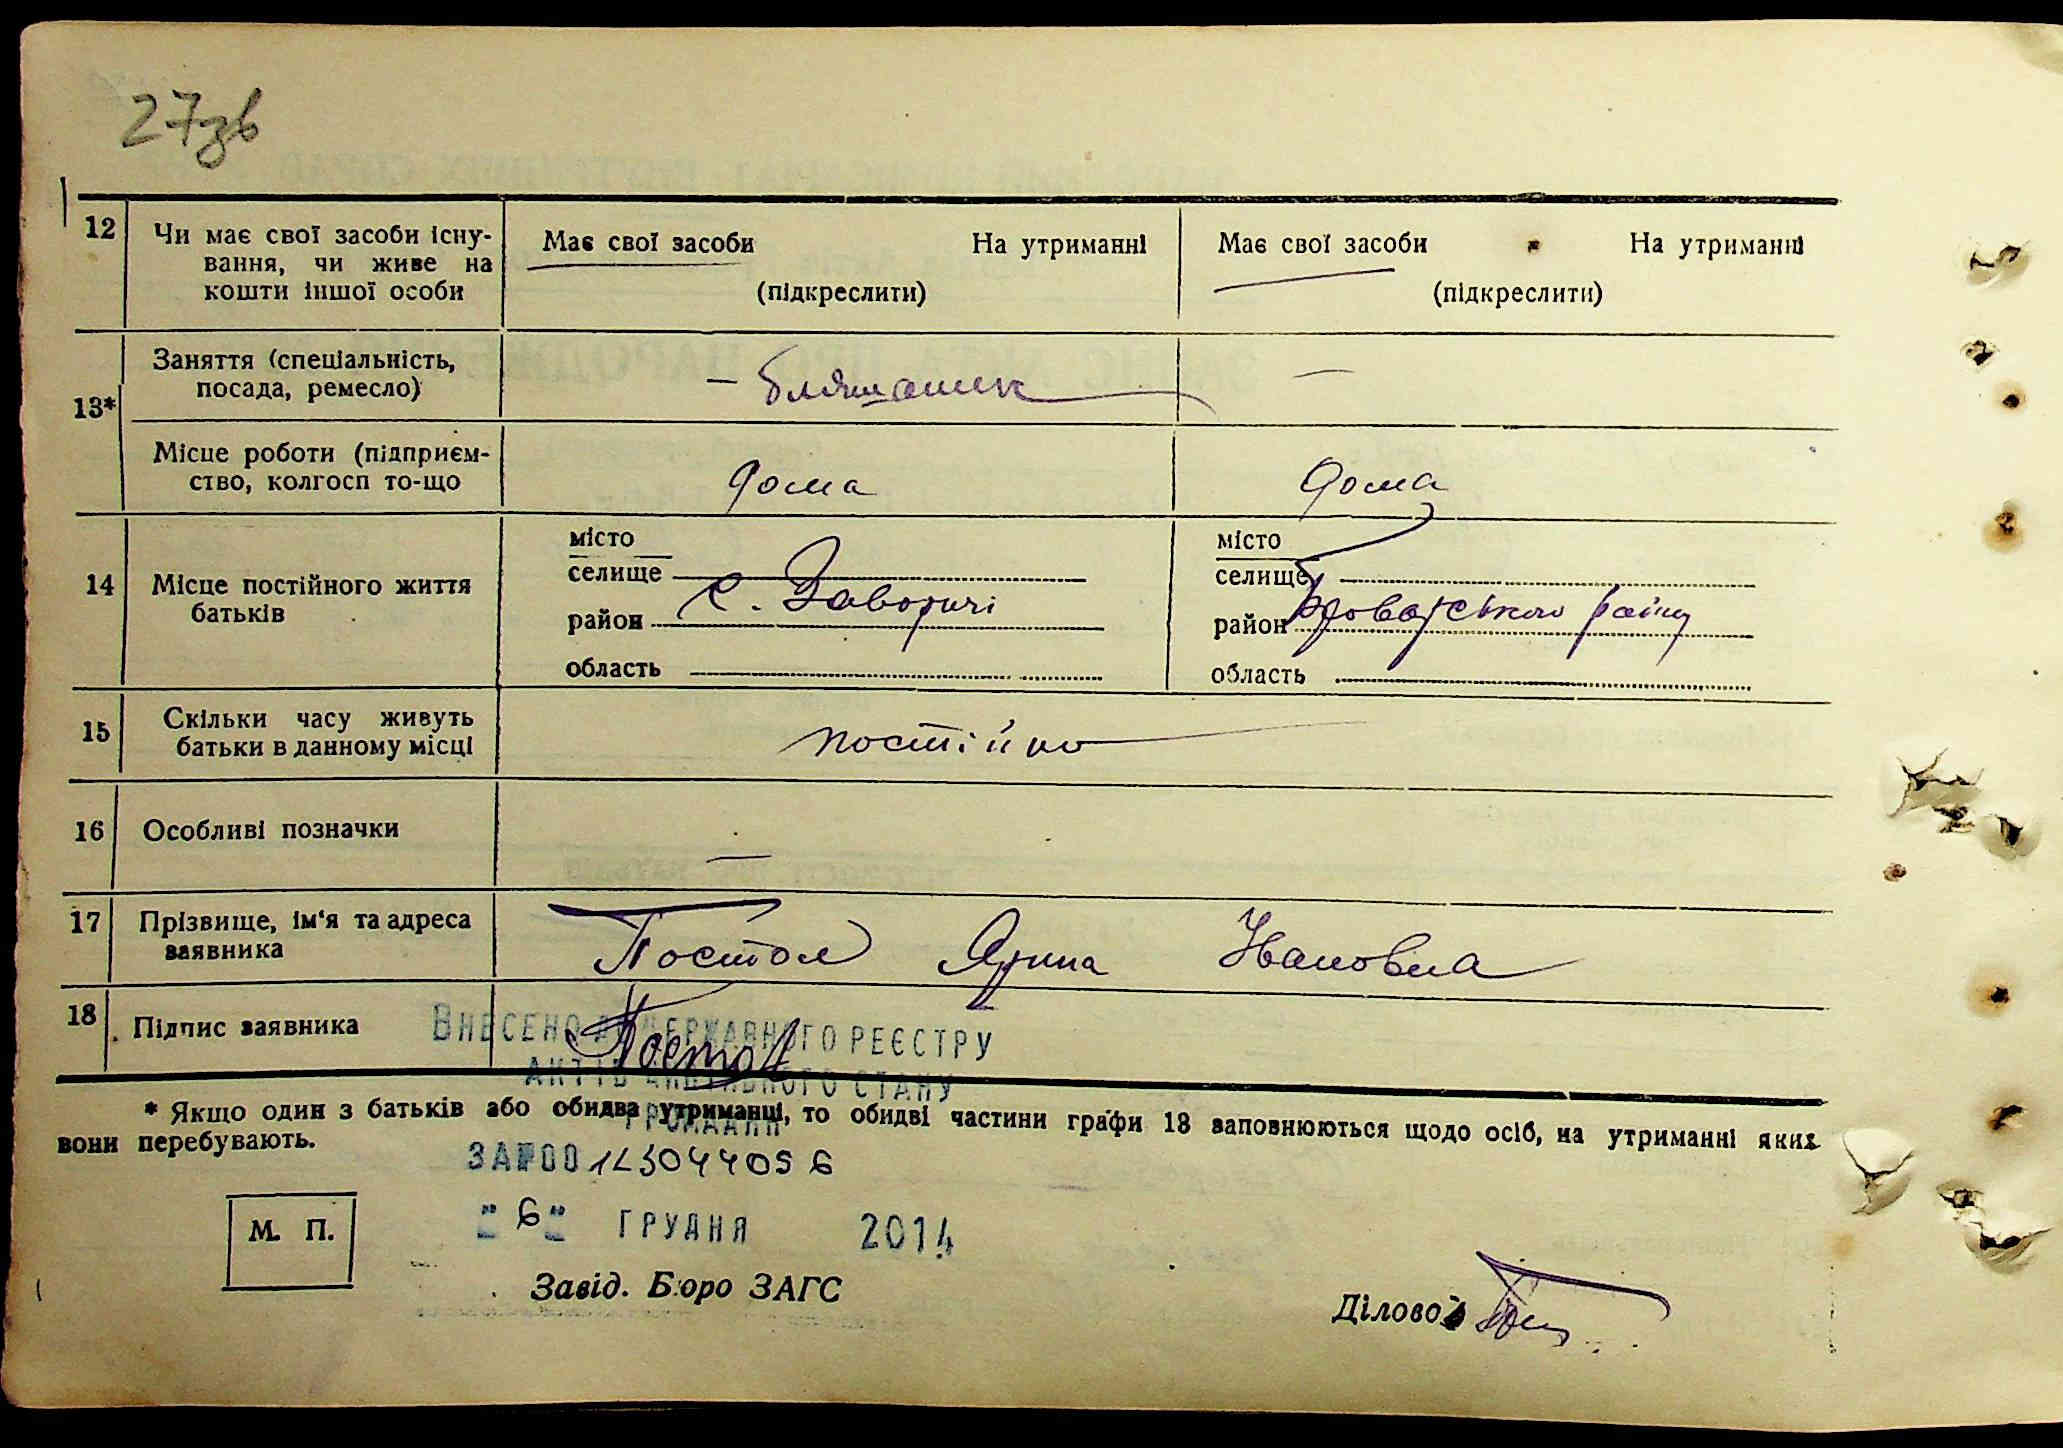 27зв
12 Чи має свої засоби існу-
вання, чи живе на
кошти іншої особи
Має свої засоби На утриманні
(підкреслити)
Має свої засоби На утриманні
(підкреслити)
13*
Заняття (спеціальність,
посада, ремесло)
– бляшаник
—
Місце роботи (підприєм-
ство, колгосп то-що
дома
дома
14 Місце постійного життя
батьків
місто
селище
район с. Заворичі
область
місто
селище
район Броварського району
область
15 Скільки часу живуть
батьки в данному місці
постійно
16 Особливі позначки
—
17 Прізвище, ім'я та адреса
заявника
Постол Ярина Івановна
18 Підпис заявника
Постол
Внесено до Державного реєстру
актів цивільного стану
громадян
* Якщо один з батьків або обидва утриманці, то обидві частини графи 18 заповнюються щодо осіб, на утриманні яких
вони перебувають.
ЗА №00123044056
"6" грудня 2014
М. П.
Завід. Бюро ЗАГС
Діловод